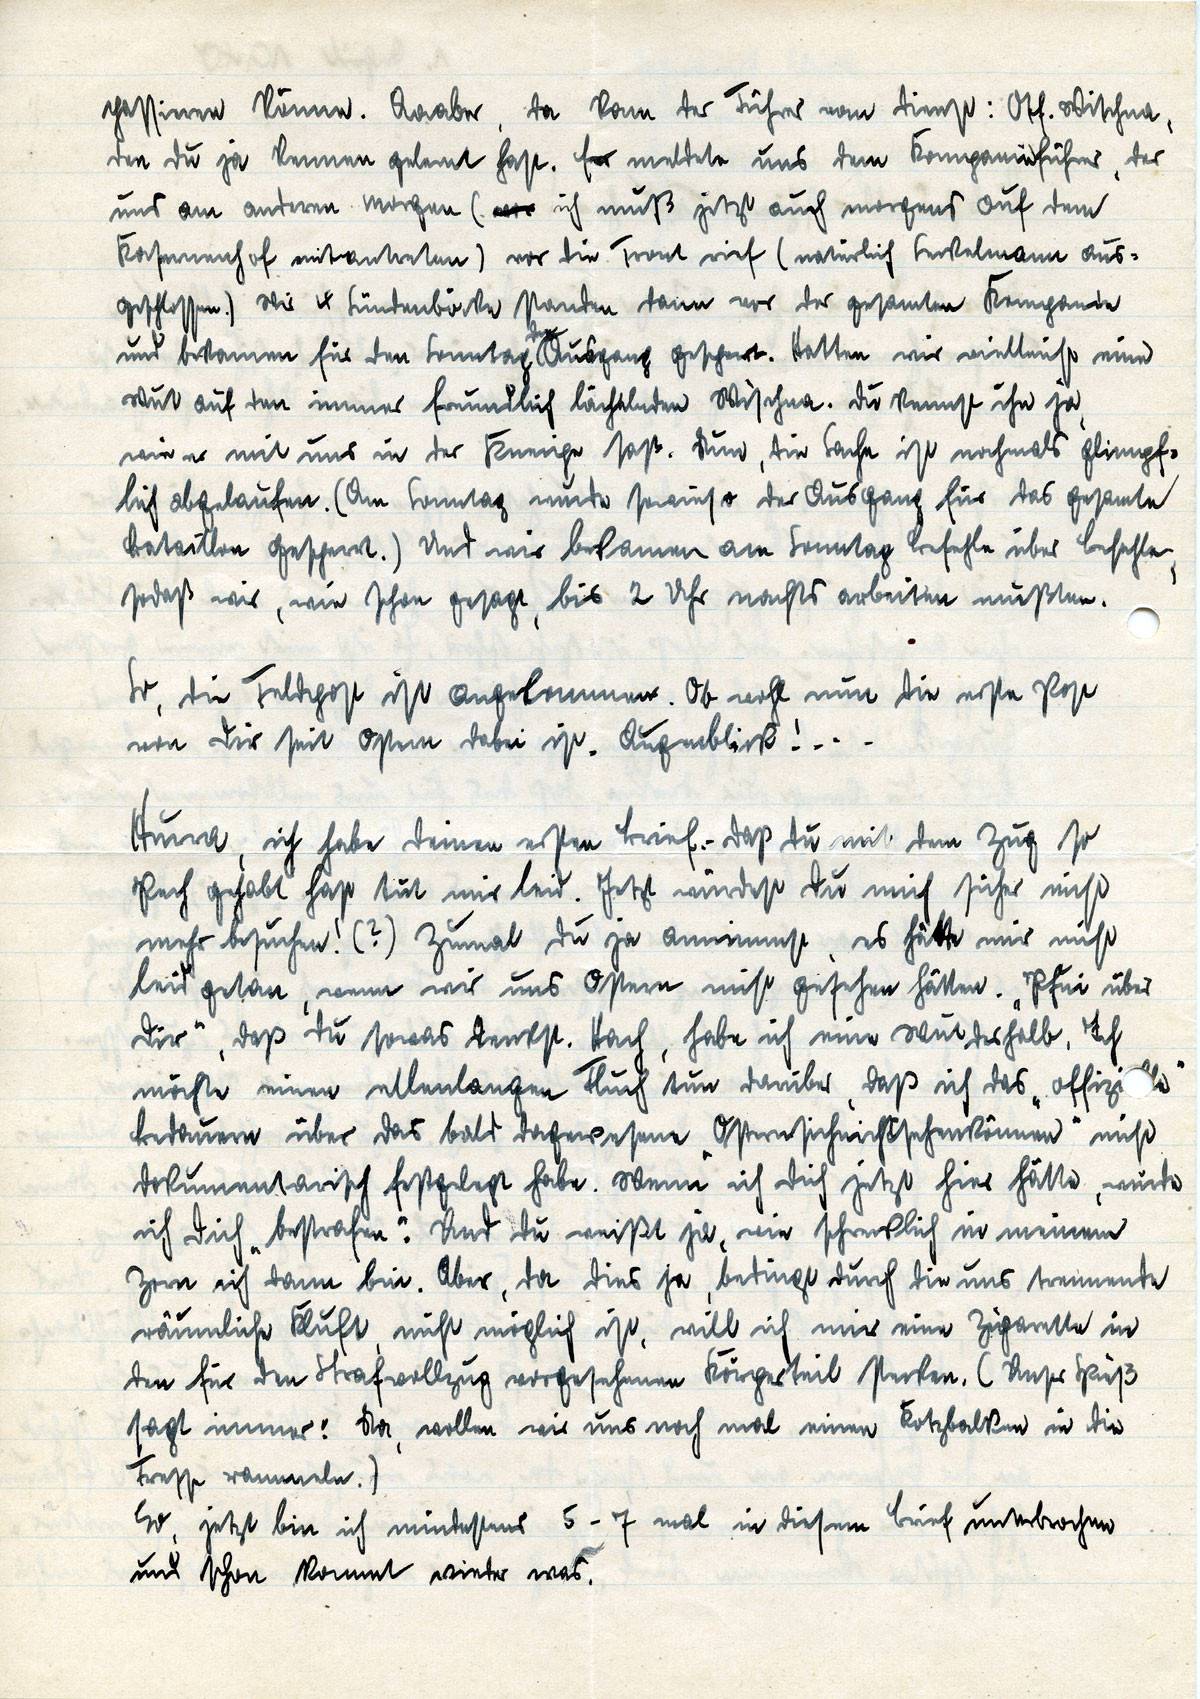 passieren könne. Aaaber, da kam der Führer vom Dienst: Off. Wischna,
den Du ja kennen gelernt hast. Er meldete uns dem Kompanieführer, der
uns am anderen Morgen (ich muß jetzt auch morgens auf dem
Kasernenhof mitantreten) vor die Front rief (natürlich Seckelmann aus-
geschlossen.) Wir 4 Sündenböcke standen dann vor der gesamten Kompanie
und bekamen für den Sonntag den Ausgang gesperrt. Hatten wir vielleicht eine
Wut auf den immer freundlich lächelnden Wischna. Du kennst ihn ja,
wie er mit uns in der Kneipe saß. Nun, die Sache ist nochmals glimpf-
lich abgelaufen. (Am Sonntag wurde sowieso der Ausgang für das gesamte
Bataillon gesperrt.) Und wir bekamen am Sonntag Befehle über Befehle,
sodaß wir, wie schon gesagt, bis 2 Uhr nachts arbeiten mußten.
So, die Feldpost ist angekommen. Ob wohl nun die erste Post
von Dir seit Ostern dabei ist. Augenblick! - - -
Hurra, ich habe Deinen ersten Brief.- Daß Du mit dem Zug so
Pech gehabt hast tut mir leid. Jetzt würdest Du mich sicher nicht
mehr besuchen! (?) Zumal Du ja annimmst, es hätte mir nicht
leid getan, wenn wir uns Ostern nicht gesehen hätten. „Pfui über
Dir“, daß Du sowas denkst. Hach, habe ich eine Wut deshalb. Ich
möchte einen ellenlangen Fluch tun darüber, daß ich das „offizielle“
Bedauern über das bald dagewesene „Osternsichnichtsehenkönnen“ nicht
dokumentarisch festgelegt habe. Wenn ich Dich jetzt hier hätte, würde
ich Dich „bestrafen“. Und Du weißt ja, wie schrecklich in meinem
Zorn ich dann bin. Aber, da dies ja, bedingt durch die uns trennende
räumliche Kluft, nicht möglich ist, will ich mir eine Zigarette in
den für den Strafvollzug vorgesehenen Körperteil stecken. (Unser Spieß
sagt immer: Na, wollen wir uns noch mal einen Kotzbalken in die
Fresse rammeln.)
So, jetzt bin ich mindestens 5 - 7 mal in diesem Brief unterbrochen
und schon kommt wieder was.